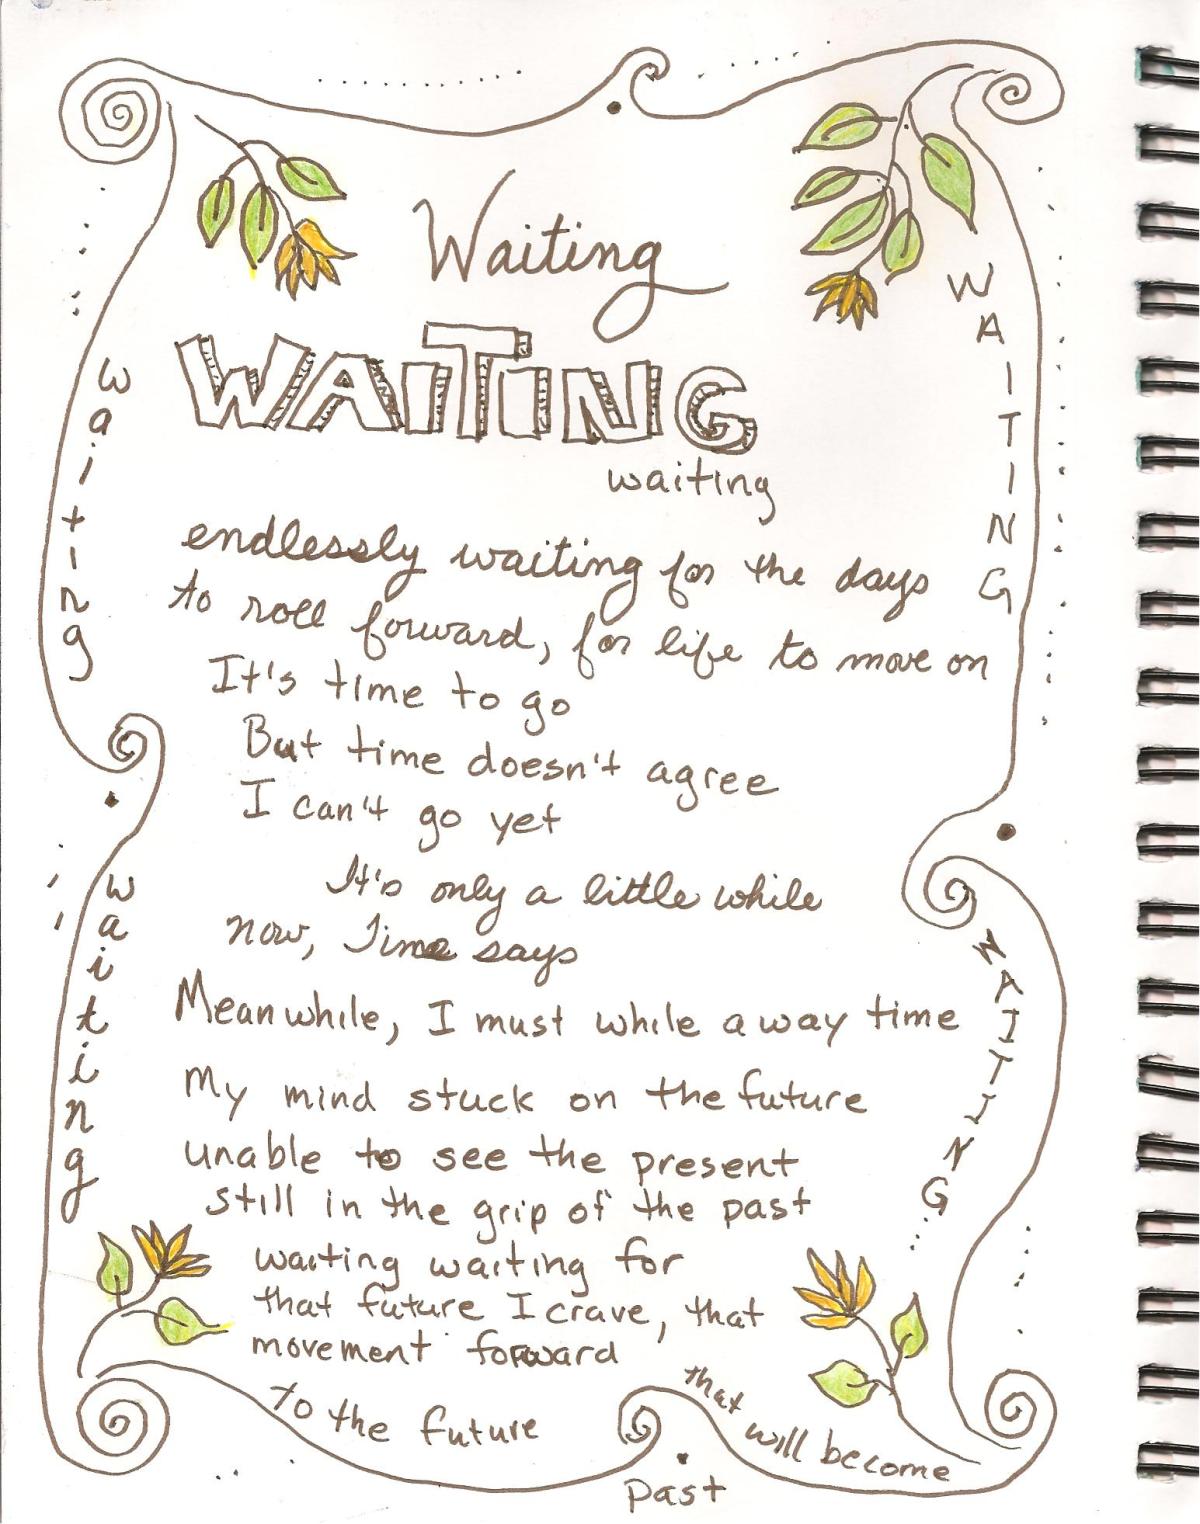 Waiting
WAITING
waiting
endlessly waiting for the days
to roll forward, for life to move on
It's time to go
But time doesn't agree
I can't go yet
It's only a little while
now, Time says
Meanwhile, I must while away time
My mind stuck on the future
unable to see the present
still in the grip of the past
waiting waiting for
that future I crave, that
movement forward
to the future
that will become
past
waiting
waiting
WAITING
WAITING